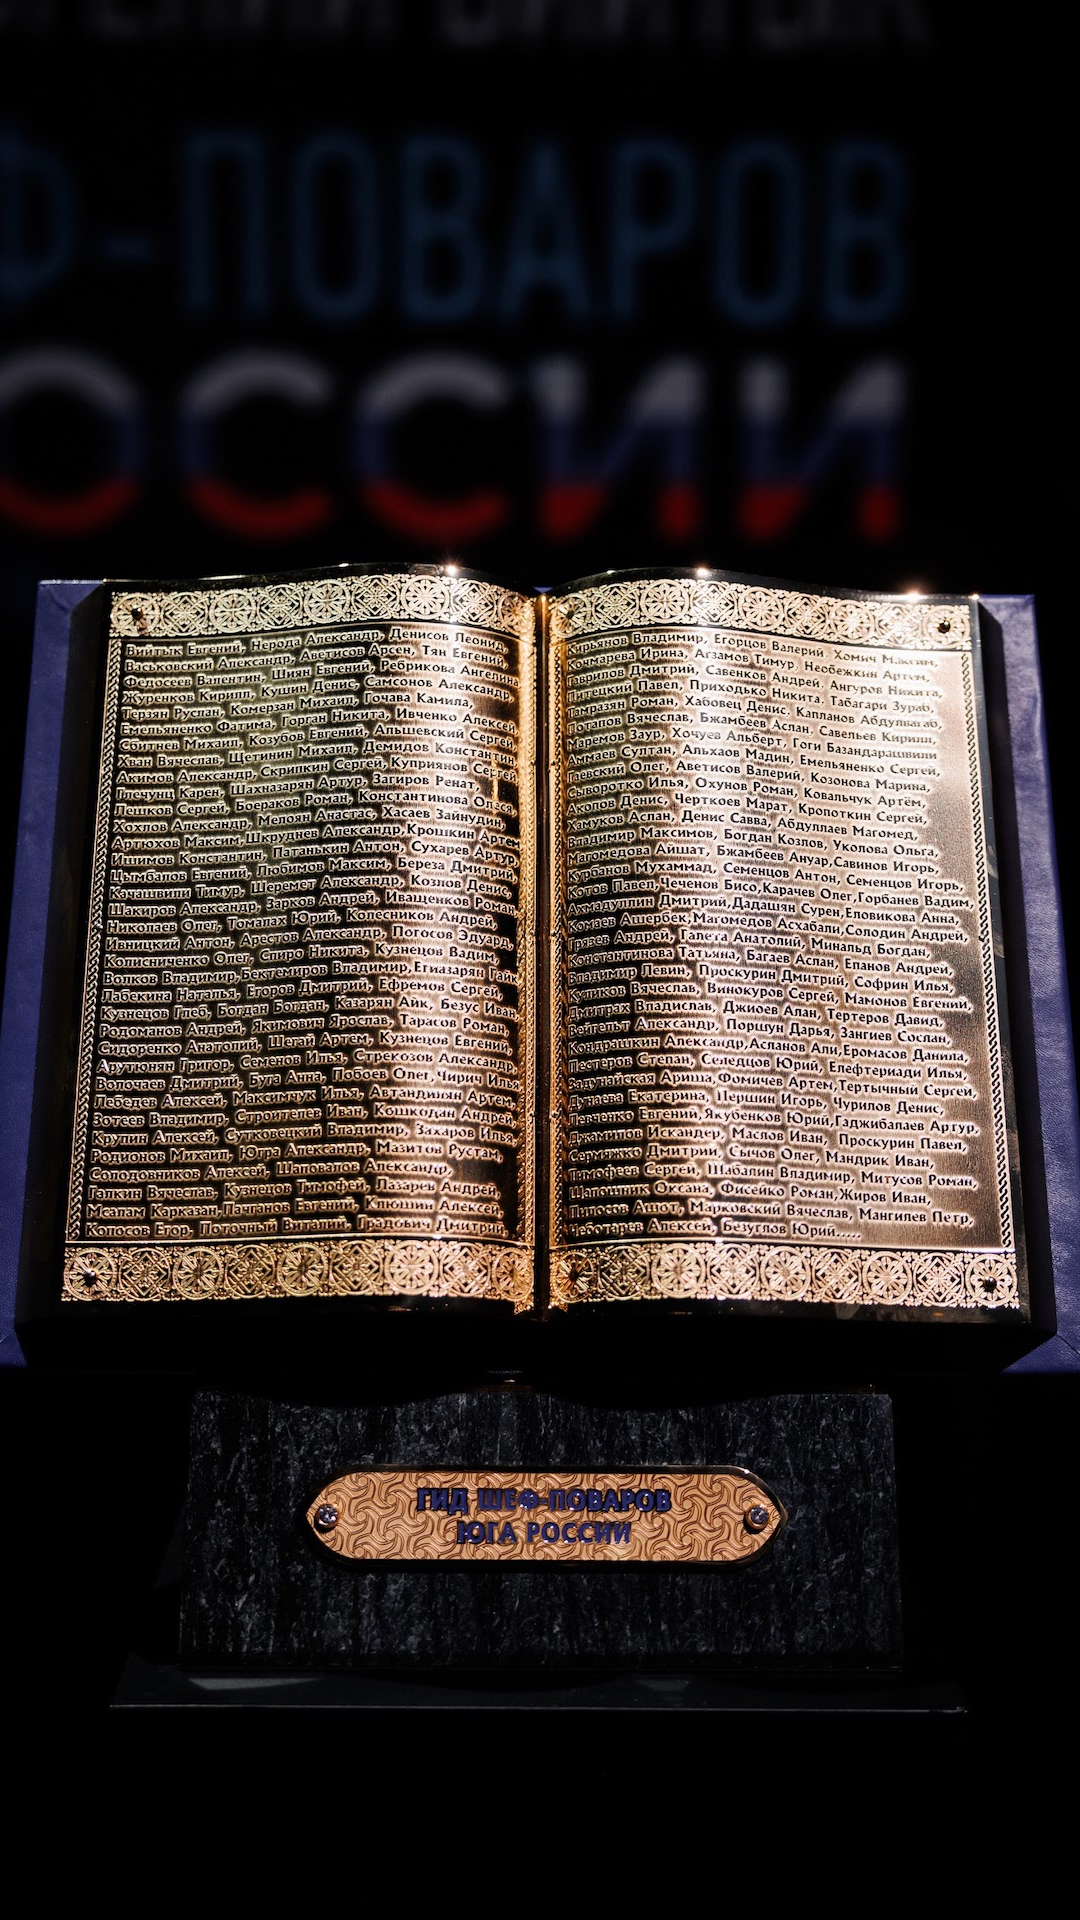 Ф-ПОВАРОВ
ОССИИ
Вийтык Евгений, Нерода Александр, Денисов Леонид,
Васьковский Александр, Аветисов Арсен, Тян Евгений,
Федосеев Валентин, Шиян Евгений, Ребрикова Ангелина
Журенков Кирилл, Кушин Денис, Самсонов Александр,
Терзян Руслан, Комерзан Михаил, Гочава Камила,
Емельяненко Фатима, Горган Никита, Ивченко Алексей
Сбитнев Михаил, Козубов Евгений, Альшевский Сергей
Хван Вячеслав, Щетинин Михаил, Демидов Константин
Акимов Александр, Скрипкин Сергей, Куприянов Сергей
Глечунц Карен, Шахназарян Артур, Загиров Ренат,
Пешков Сергей, Боераков Роман, Константинова Олеся,
Хохлов Александр, Мелоян Анастас, Хасаев Зайнудин,
Артюхов Максим, Шкруднев Александр, Крошкин Артем
Ишимов Константин, Патанькин Антон, Сухарев Артур,
Цымбалов Евгений, Любимов Максим, Береза Дмитрий,
Качашвили Тимур, Шеремет Александр, Козлов Денис,
Шакиров Александр, Зарков Андрей, Иващенков Роман,
Николаев Олег, Томалах Юрий, Колесников Андрей,
Ивницкий Антон, Арестов Александр, Погосов Эдуард,
Колисниченко Олег, Спиро Никита, Кузнецов Вадим,
Волков Владимир, Бектемиров Владимир, Егиазарян Гайк
Лабекина Наталья, Егоров Дмитрий, Ефремов Сергей,
Кузнецов Глеб, Богдан Богдан, Казарян Айк, Безус Иван,
Родоманов Андрей, Якимович Ярослав, Тарасов Роман,
Сидоренко Анатолий, Шегай Артем, Кузнецов Евгений,
Арутюнян Григор, Семенов Илья, Стрекозов Александр,
Волочаев Дмитрий, Буга Анна, Побоев Олег, Чирич Илья
Лебедев Алексей, Максимчук Илья, Автандинян Артем,
Зотеев Владимир, Строителев Иван, Кошкодан Андрей
Крупин Алексей, Сутковецкий Владимир, Захаров Илья,
Родионов Михаил, Югра Александр, Мамтов Рустам,
Солодовников Алексей, Шаповалов Александр,
Галкин Вячеслав, Кузнецов Тимофей, Лазарев Андрей,
Мсалам Карказан, Пачганов Евгений, Клишин Алексей,
Колосов Егор, Поточный Виталий, Градович Дмитрий
Кирьянов Владимир, Егорцов Валерий, Хомич Максим,
Кочмарева Ирина, Агзамов Тимур, Необежкин Артем,
Гаврилов Дмитрий, Савенков Андрей, Ангуров Никита,
Питецкий Павел, Приходько Никита, Табагари Зураб,
Тамразян Роман, Хабовец Денис, Капланов Абдулвагаб,
Потапов Вячеслав, Бжамбеев Аслан, Савельев Кирилл,
Маремов Заур, Хочуев Альберт, Гоги Базандарашвили
Аммаев Султан, Альхаов Мадин, Емельяненко Сергей,
Гаевский Олег, Аветисов Валерий, Козонова Марина,
Сыворотко Илья, Охунов Роман, Ковальчук Артём,
Акопов Денис, Черткоев Марат, Кропоткин Сергей,
Хамуков Аслан, Денис Савва, Абдуллаев Магомед,
Владимир Максимов, Богдан Козлов, Уколова Ольга,
Магомедова Айшат, Бжамбеев Ануар, Савинов Игорь,
Курбанов Мухаммад, Семенцов Антон, Семенцов Игорь,
Котов Павел, Чеченов Бисо, Карачев Олег, Горбанев Вадим,
Ахмадуллин Дмитрий, Дадашян Сурен, Еловикова Анна,
Комаев Ашербек, Магомедов Асхабали, Солодин Андрей,
Грязев Андрей, Галета Анатолий, Минальд Богдан,
Константинова Татьяна, Багаев Аслан, Епанов Андрей,
Владимир Левин, Проскурин Дмитрий, Софрин Илья,
Куликов Вячеслав, Винокуров Сергей, Мамонов Евгений,
Дмитрах Владислав, Джиоев Алан, Тертеров Давид,
Вейгельт Александр, Поршун Дарья, Зангиев Сослан,
Кондрашкин Александр, Асланов Али, Еромасов Данила,
Пестеров Степан, Селедцов Юрий, Елефтериади Илья,
Задунайская Ариша, Фомичёв Артем, Тертычный Сергей,
Дунаева Екатерина, Першин Игорь, Чурилов Денис,
Левченко Евгений, Якубенков Юрий, Гаджибалаев Артур,
Джамилов Искандер, Маслов Иван, Проскурин Павел,
Сермяжко Дмитрий, Сычов Олег, Мандрик Иван,
Тимофеев Сергей, Шабалин Владимир, Митусов Роман,
Шапошник Оксана, Фисейко Роман, Жиров Иван,
Пилосов Ашот, Марковский Вячеслав, Мангилев Петр,
Чеботарев Алексей, Безуглов Юрий.....
ГИД ШЕФ-ПОВАРОВ
ЮГА РОССИИ